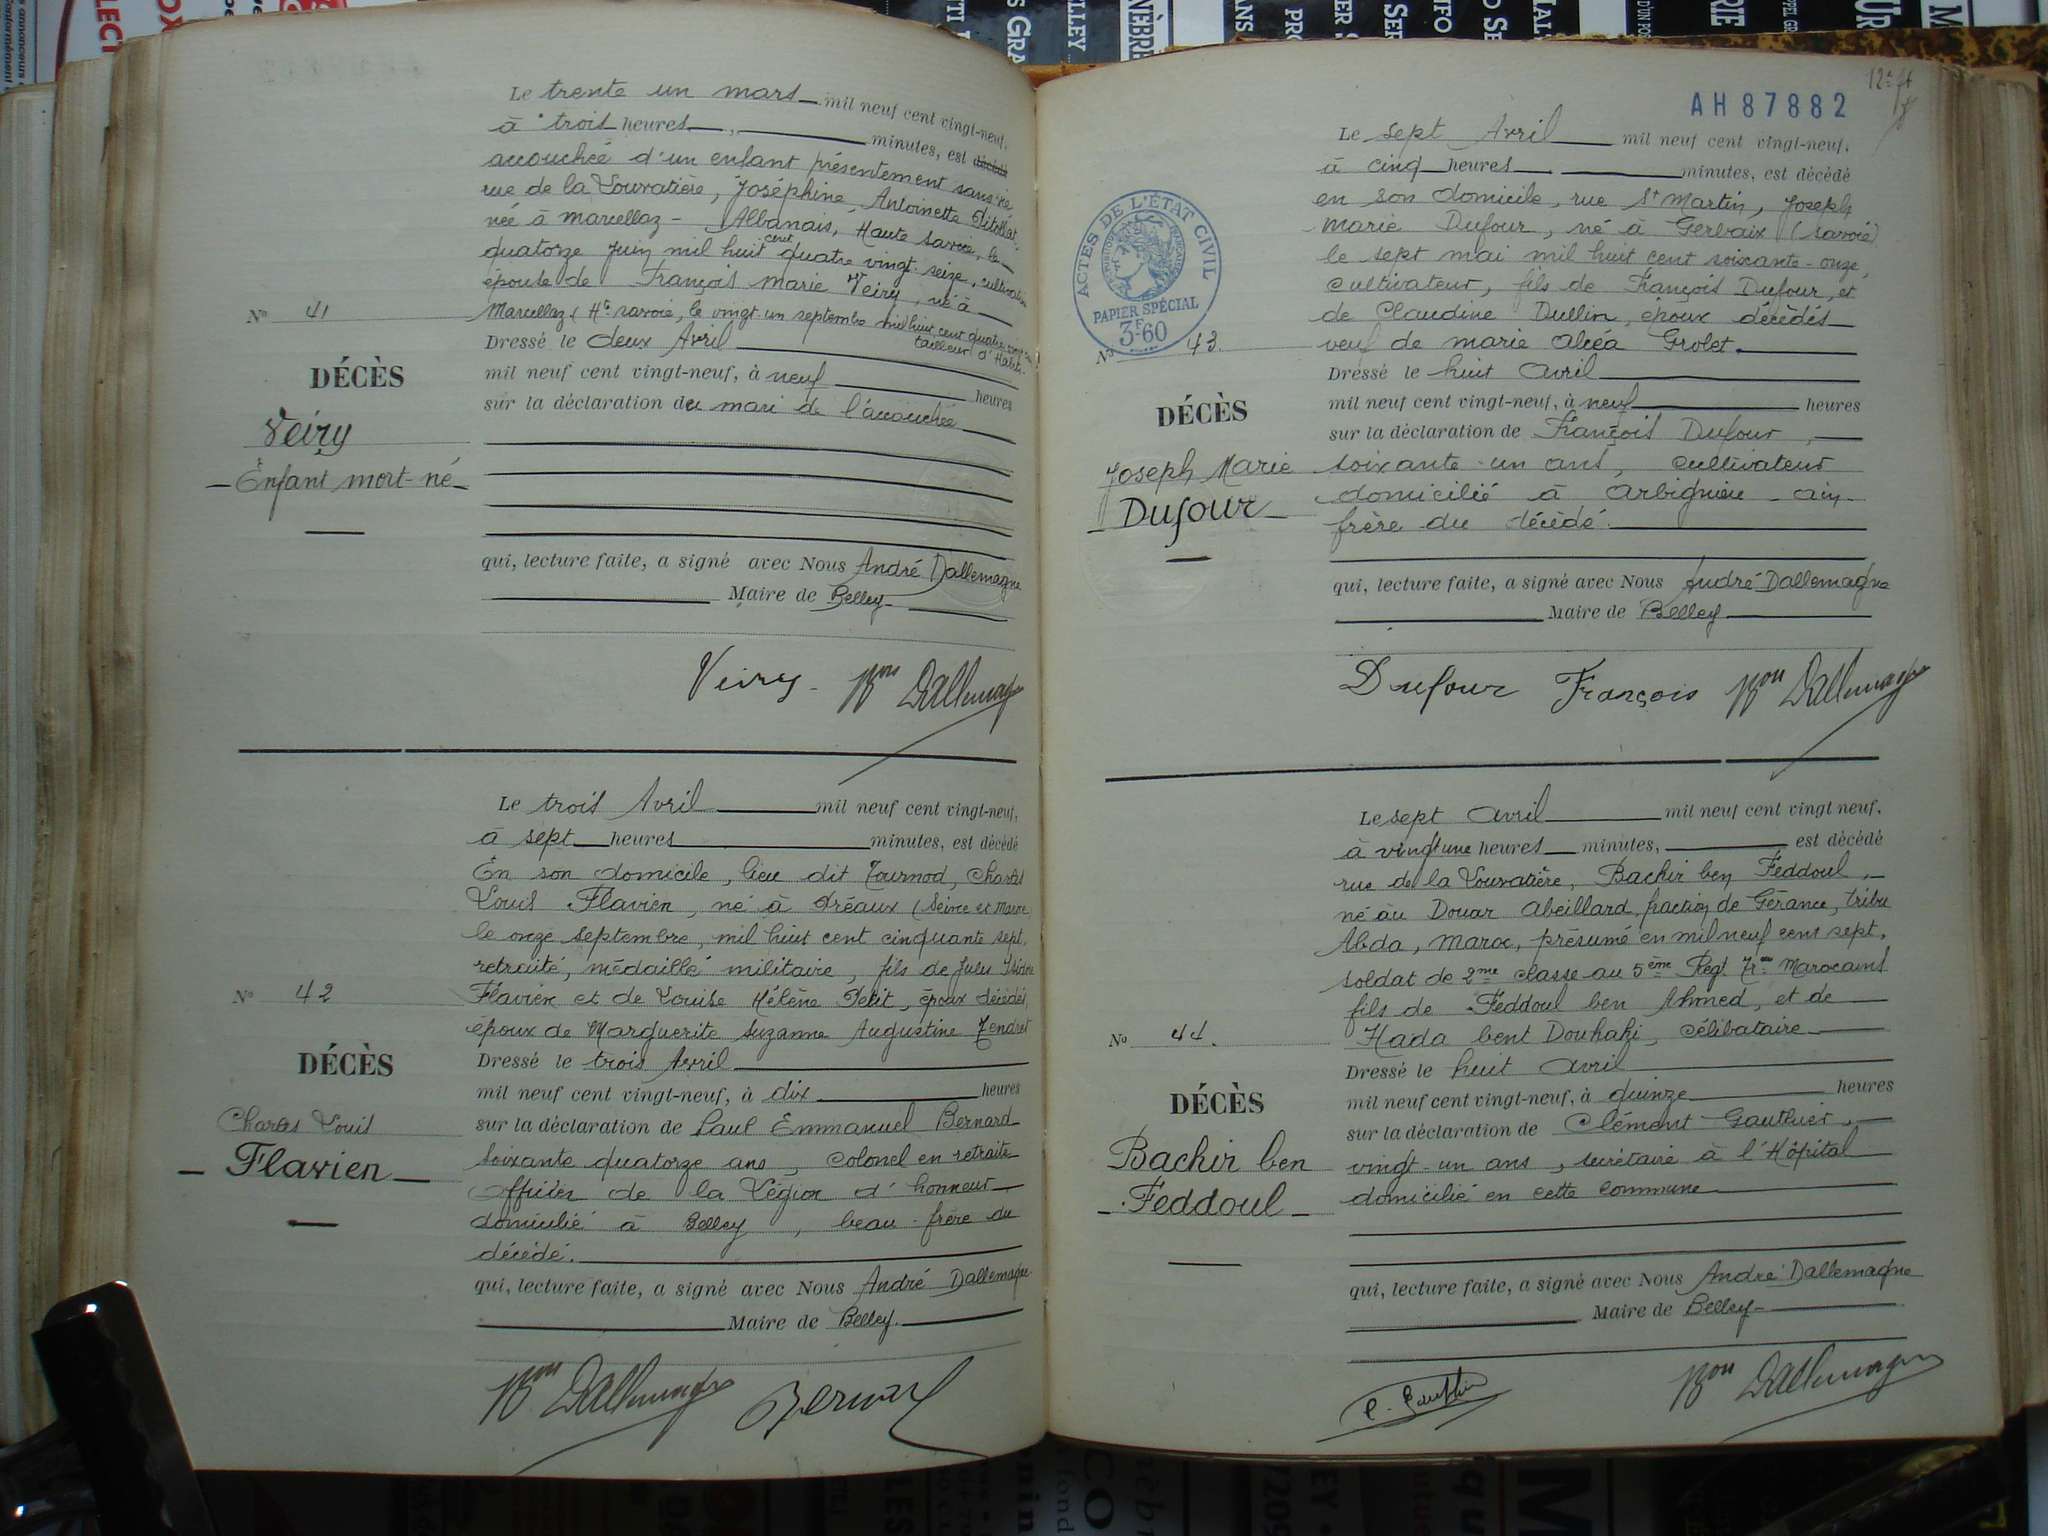 Le trente un mars mil neuf cent vingt-neuf,
à trois heures, minutes, est décédé
accouchée d'un enfant présentement sans vie
rue de la Louvatière, Joséphine, Antoinette
née à Marcellaz - Albanais, Haute Savoie, le
quatorze juin mil huit cent quatre vingt-seize, cultivatrice
épouse de François Marie Veiry, né à
Marcellaz (Hte Savoie, le vingt-un septembre mil huit cent quatre vingt
tailleur d'Habits
Nº 41
Dressé le deux Avril
mil neuf cent vingt-neuf, à neuf heures
sur la déclaration du mari de l'accouchée
DÉCÈS
Veiry
Enfant mort-né
qui, lecture faite, a signé avec Nous André Dallemagne
Maire de Belley
Veiry Bon Dallemagne
Le trois Avril mil neuf cent vingt-neuf,
à sept heures minutes, est décédé
En son domicile, lieu dit Tournod, Charles
Louis Flavien, né à Préaux (Seine et Marne
le onze septembre, mil huit cent cinquante sept,
retraité, médaillé militaire, fils de Jules Isidore
Flavien et de Louise Hélène Petit, époux décédés,
époux de Marguerite Suzanne Augustine Tendret
Nº 42
Dressé le trois Avril
mil neuf cent vingt-neuf, à dix heures
sur la déclaration de Paul Emmanuel Bernard
soixante quatorze ans, Colonel en retraite
officier de la Légion d'honneur
domicilié à Belley, beau-frère du
décédé.
DÉCÈS
Charles Louis
Flavien
qui, lecture faite, a signé avec Nous André Dallemagne
Maire de Belley.
Bon Dallemagne Bernard
AH87882
ACTES DE L'ÉTAT CIVIL
PAPIER SPÉCIAL
3F60
Le sept Avril mil neuf cent vingt-neuf,
à cinq heures minutes, est décédé
en son domicile, rue St Martin, Joseph
Marie Dufour, né à Gerbaix (Savoie)
le sept mai mil huit cent soixante-onze,
cultivateur, fils de François Dufour, et
de Claudine Dullin, époux décédés
veuf de Marie Grobet.
Nº 43.
Dressé le huit Avril
mil neuf cent vingt-neuf, à neuf heures
sur la déclaration de François Dufour,
soixante-un ans, cultivateur
domicilié à Arbignieu - Ain -
frère du décédé.
DÉCÈS
Joseph Marie
Dufour
qui, lecture faite, a signé avec Nous André Dallemagne
Maire de Belley
Dufour François Bon Dallemagne
Le sept Avril mil neuf cent vingt neuf,
à vingt une heures minutes, est décédé
rue de la Louvatière, Bachir ben Feddoul,
né au Douar Abeillard, fraction de Gérance, tribu
Abda, Maroc, présumé en mil neuf cent sept,
soldat de 2me classe au 5ème Regt Marocains
fils de Feddoul ben Ahmed, et de
Hada bent Douhaki, célibataire
Nº 44.
Dressé le huit Avril
mil neuf cent vingt-neuf, à quinze heures
sur la déclaration de Clément Gauthier,
vingt-un ans, secrétaire à l'Hôpital
domicilié en cette commune
DÉCÈS
Bachir ben
Feddoul
qui, lecture faite, a signé avec Nous André Dallemagne
Maire de Belley
C. Gauthier Bon Dallemagne